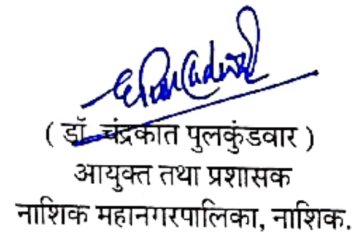 ( डॉ. चंद्रकात पुलकुंडवार )
आयुक्त तथा प्रशासक
नाशिक महानगरपालिका, नाशिक.